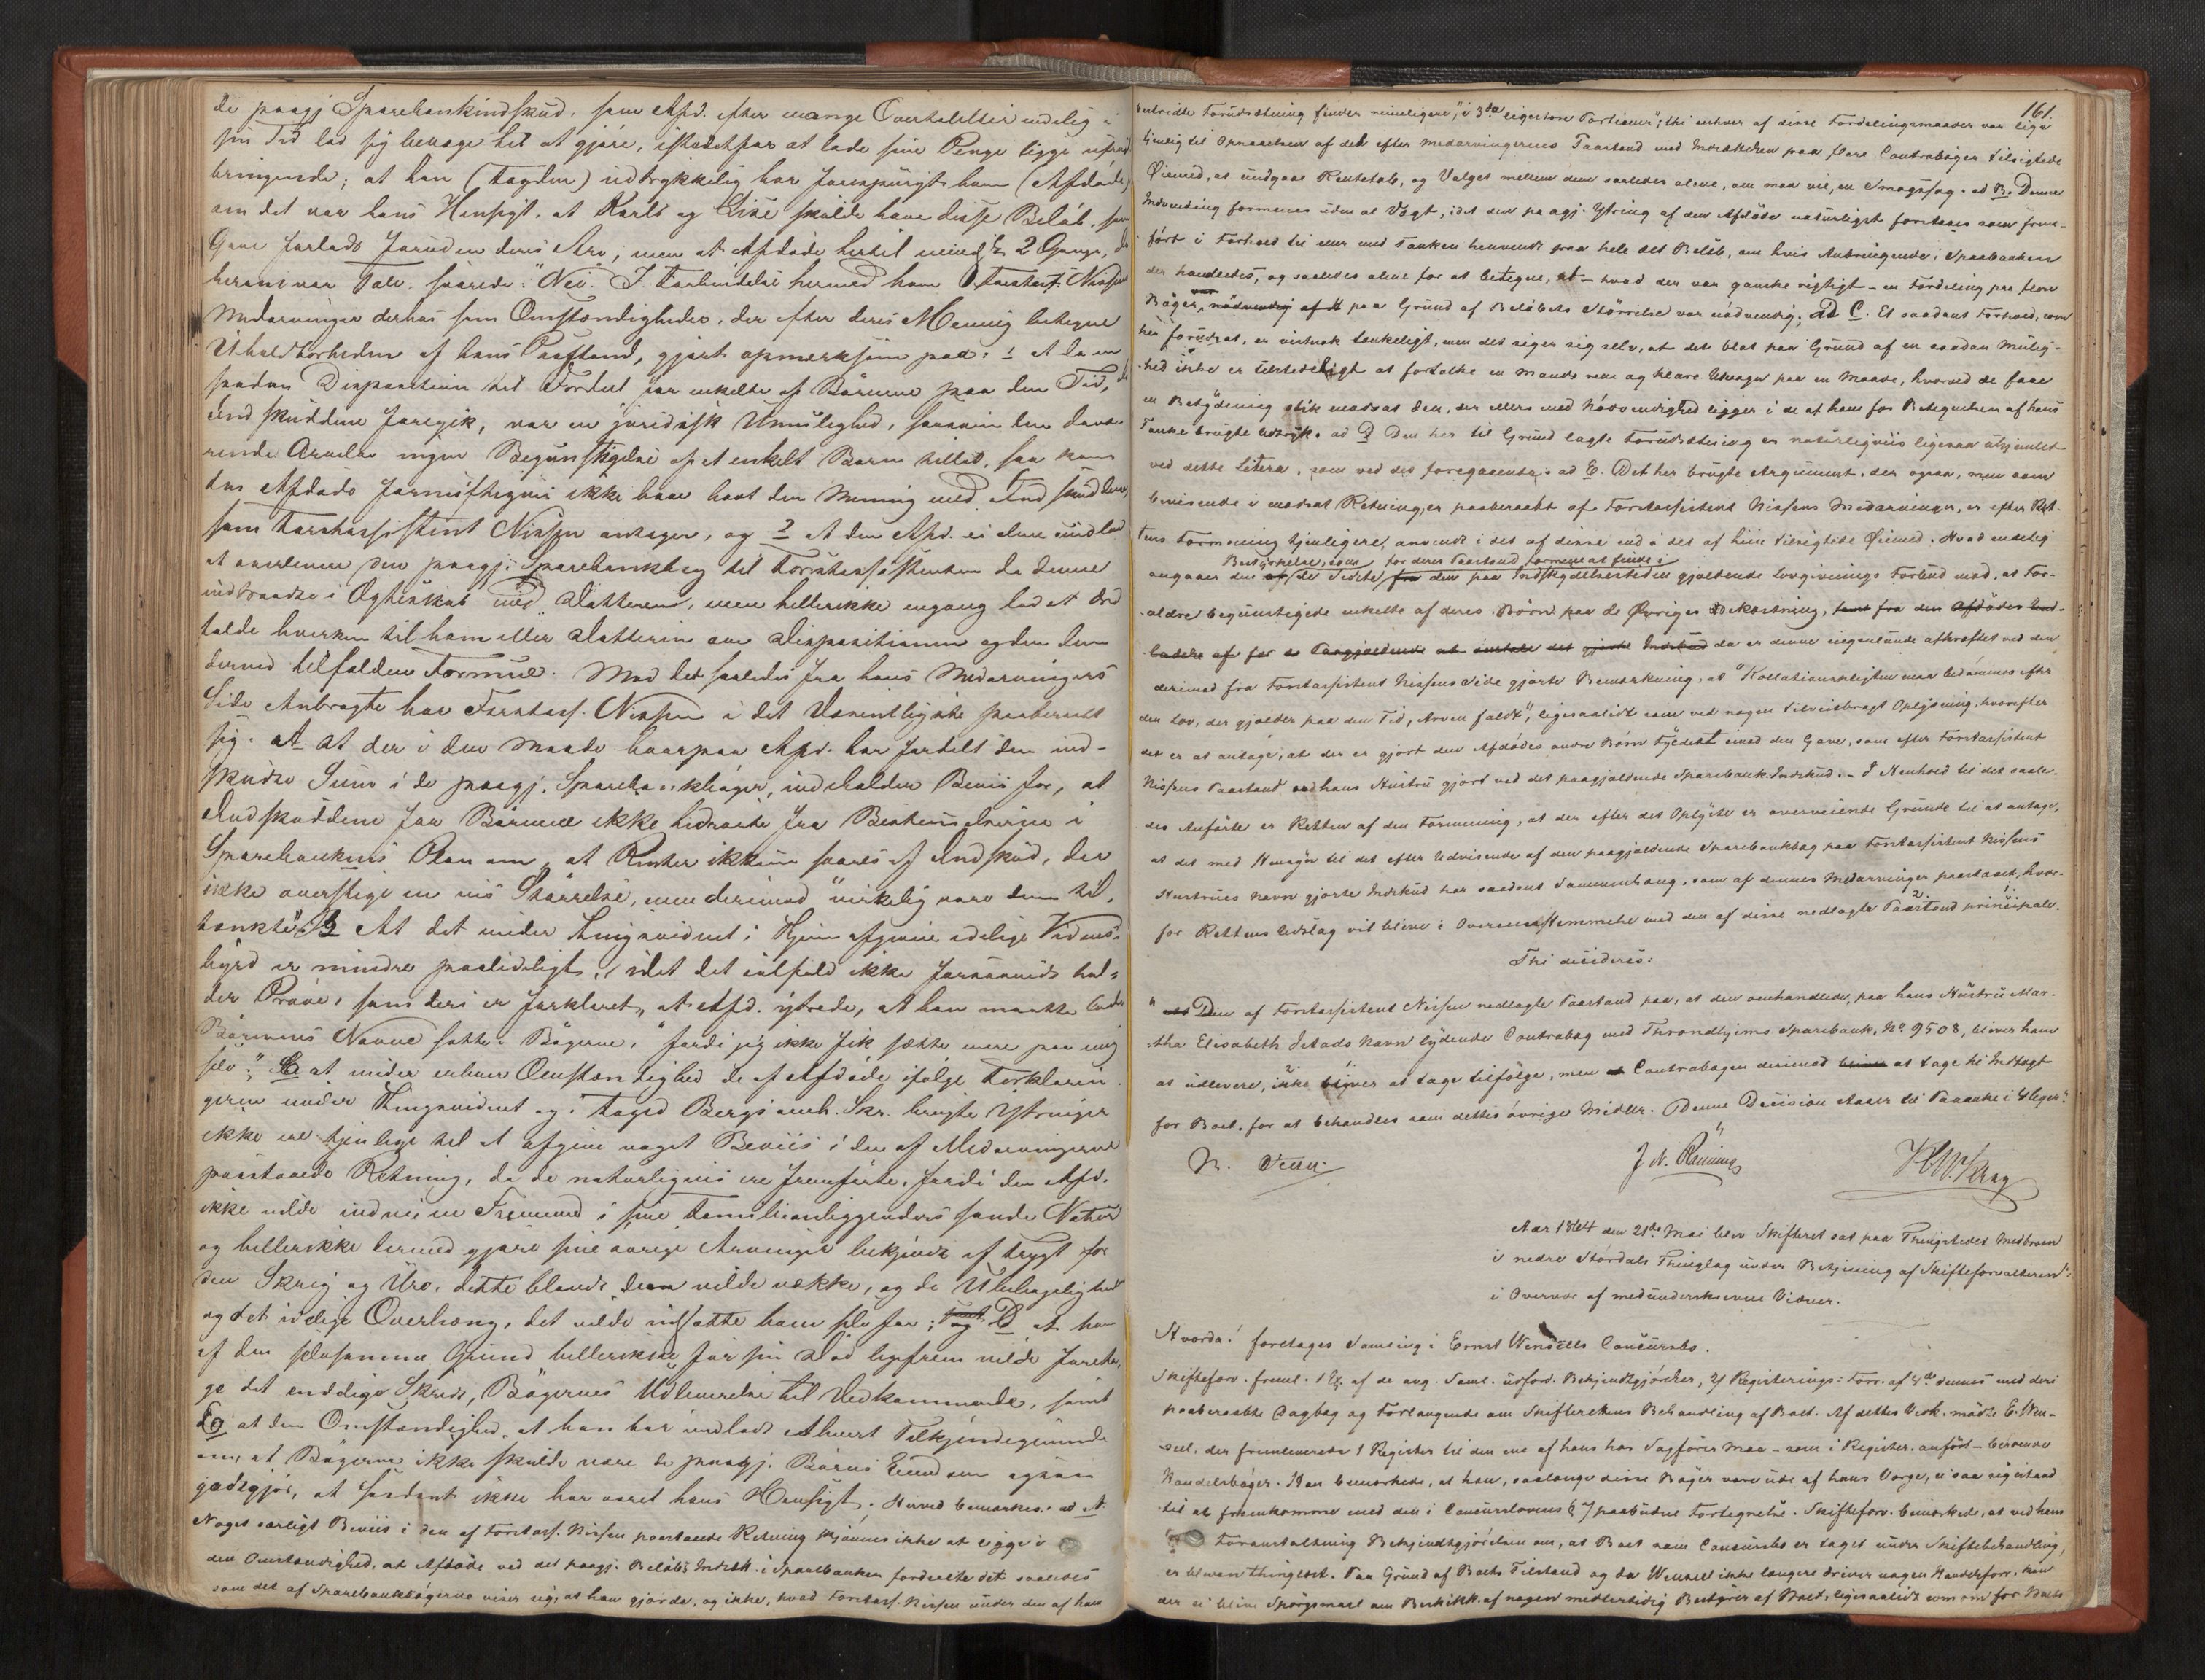 de paagj Sparebankindskud, som Afd. efter mange Overtalelser endelig i
sin Tid lod sig bevæge til at gjøre, istedetfor at lade sine Penge ligge ufrugt
bringende; at han (Lagden) udtrykkelig har forespurgt ham (Afdøde)
om det var hans Hensigt, at Karls og Lise skulde have disse Beløb, som
Gave forlods foruden deres Arv, men at Afdøde hertil mindst 2 Gange, da
herom var Tale, svarede: "Nei". I Forbindelse hermed have Forstass. Nissens
Medarvinger derhos som Omstændigheder, der efter deres Mening betegne
Uholdbarheden af hans Paastand, gjort opmærksom paa: 1 at da en
saadan Disposition til Fordeel for enkelte af Børnene paa den Tid, da
Indskuddene foregik, var en juridisk Umulighed, saasom den davæ-
rende Arvelov ingen Begunstigelse af et enkelt Barn tillod, saa kan
den Afdøde fornuftigviis ikke have havt den Mening med Indskuddene,
som Forstassistent Nissen antager, og 2 at den Afd. ei alene undlod
at overlevere den paagj. Sparebankbog til Forstassistenten da denne
indtraadte i Ægteskab med Datteren, men hellerikke engang lod et Ord
falde hverken til ham eller Datteren om Dispositionen og den dem
derved tilfaldne Formue. Mod det saaledes fra hans Medarvingers
Side Anbragte har Forstass. Nissen i det Væsentligste paaberaabt
sig: A at der i den Maade hvorpaa Afd. har fordelt den ind-
skudte Sum i de paagj. Sparebankbøger, indeholder Beviis for, at
Indskuddene for Børnene ikke hidrørte fra Bestemmelserne i
Sparebankens Plan om, at Renter ikkun svares af Indskud, der
ikke overstige en vis Størrelse, men derimod "virkelig vare dem til-
tænkte"; B At det under Thingsvidnet i Hjem afgivne edelige Vidnes-
byrd er mindre paalideligt, idet det ialfald ikke forsaavidt hol-
der Prøve, som deri er forklaret, at Afd. ytrede, at han maatte lade
Børnenes Navne sætte i Bøgerne, "fordi jeg ikke fik sætte mere paa mig
selv"; C at under enhver Omstændighed de af Afdøde ifølge Forklarin-
gerne under Thingsvidnet og i Foged Bergs anh. Skr. brugte Ytringer
ikke ere tjenlige til at afgive noget Beviis i den af Medarvingerne
paastaaede Retning, da de naturligviis ere fremførte, fordi den Afd.
ikke vilde indvie en Fremmed i sine Familieanliggenders sande Natur
og hellerikke derved gjøre sine øvrige Arvinger bekjendt af Frygt for
den Skrig og Uro, dette blandt dem vilde vække, og de Ubehageligheder
og det idelige Overhæng, det vilde udsætte ham selv for; samt og D at han
af den selvsamme Grund hellerikke før sin Død ligefrem vilde foreta-
ge det endelige Skridt, Bøgernes Udleverelse til Vedkommende, samt
E at den Omstændighed, at han har undladt ethvert Tilkjendegivende
om, at Bøgerne ikke skulde være de paagj. Børns Eiendom ogsaa
godtgjør, at Saadant ikke har været hans Hensigt. Herved bemærkes: ad A.
Noget særligt Beviis i den af Forstass. Nissen paastaaede Retning skjønnes ikke at ligge i
den Omstændighed, at Afdøde ved det paagj. Beløbs Indsk. i Sparebanken fordeelte det saaledes
som det af Sparebankbøgerne viser sig, at han gjorde, og ikke, hvad Forstass. Nissen under den af ham
161.
bestridte Forudsætning finder rimeligere, "i 3de ligestore Portioner"; thi enhver af disse Fordelingsmaader var lige
tjenlig til Opnaaelsen af det efter Medarvingernes Paastand med Indskuddene paa flere Contrabøger tilsigtede
Øiemed, at undgaae Rentetab, og Valget mellem dem saaledes alene, om man vil, en Smagssag. ad B. Denne
Indvending formenes uden al Vægt, idet den paagj. Ytring af den Afdøde naturligst forstaaes som frem-
ført i Forhold til een med Tanken henvendt paa hele det Beløb, om hvis Anbringende i Sparebanken
der handledes, og saaledes alene for at betegne, at – hvad der var ganske rigtigt – en Fordeling paa flere
Bøger, nødvendig af d paa Grund af Beløbets Størrelse var nødvendig; Ad C. Et saadant Forhold, som
her forudsat, er vistnok tænkeligt, men det siger sig selv, at det blot paa Grund af en saadan Mulig-
hed ikke er tilstedeligt at fortolke en Mands rene og klare Udsagn paa en Maade, hvorved de faae
en Betydning stik modsat den, der ellers med Nødvendighed ligger i de af ham for Betegnelsen af hans
Tanke brugte Udtryk. ad D Den her til Grund lagte Forudsætning er naturligviis ligesaa uhjemlet
ved dette Litera, som ved det foregaaende. ad E. Det her brugte Argument, der ogsaa, men som
bevisende i modsat Retning, er paaberaabt af Forstassistent Nissens Medarvinger, er efter Ret-
tens Formening tjenligere, anvendt i det af disse end i det af hiin tilsigtede Øiemed. Hvad endelig
Bestyrkelse, som for deres Paastand formenes at findes i
angaaer den af de Sidste fra den paa Indskydelsestiden gjældende Lovgivnings Forbud mod, at For-
ældre begunstigede enkelte af deres Børn paa de Øvriges Bekostning, samt fra den Afdødes Und-
ladelse af for de Paagjældende at omtale det gjorte Indskud da er denne ingenlunde afkræftet ved den
derimod fra Forstassistent Nissens Side gjorte Bemærkning, at "Kollationspligten maa bedømmes efter
den Lov, der gjælder paa den Tid, Arven faldt", ligesaalidt som ved nogen tilveiebragt Oplysning, hvorefter
det er at antage, at der er gjort den Afdødes andre Børn Fyldest imod den Gave, som efter Forstassistent
Nissens Paastand ved hans Hustru gjort ved det paagjældende Sparebank-Indskud. – I Henhold til det saale-
des Anførte er Retten af den Formening, at der efter det Oplyste er overveiende Grunde til at antage,
at det med Hensyn til det efter Udvisende af den paagjældende Sparebankbog paa Forstassistent Nissens
Hustrues Navn gjorte Indskud har saadant Sammenhæng, som af dennes Medarvinger paastaaet, hvor-
for Rettens Udslag vil blive i Overensstemmelse med den af disse nedlagte Paastand principale.
Thi decideres:
"Den af Forstassistent Nissen nedlagte Paastand paa, at den omhandlede, paa hans Hustru Mar-
tha Elisabeth Jelstads Navn lydende Contrabog med Throndhjems Sparebank, No 9508, bliver ham
at udlevere, ikke bliver at tage tilfølge, men Contrabogen derimod bliver at tage til Indtægt
for Boet, for at behandles som dettes øvrige Midler. Denne Decision staaer til Paaanke i 4 Uger."
J. N. Rønning
H. W. Krag
Aar 1864 den 21de Mai blev Skifteret sat paa Thingstedet Medbroen
i nedre Stördals Thinglag under Betjening af Skifteforvalteren
i Overvær af medunderskrevne Vidner.
Hvorda: foretages Samling i Ernst Wensells Concursbo.
Skifteforv. freml. 1 Ex. af de ang. Saml. udford. Bekjendtgjørelser, 2) Registerings-Forr. af 4de dennes med deri
paaberaabte Dagbog og Forlangende om Skifterettens Behandling af Boet. Af dettes Vedk. mødte E. Wen-
sell, der fremleverede 1 Register til den ene af hans hos Sagfører Moe – som i Register. anført – beroende
Handelsbøger. Han bemærkede, at han, saalænge disse Bøger vare ude af hans Værge, ei saa sig istand
til at fremkomme med den i Concurslovens § 7 paabudne Fortegnelse. Skifteforv. bemærkede, at ved hans
Foranstaltning Bekjendtgjørelsen om, at Boet som Concursbo er taget under Skiftebehandling,
er bleven thinglæst. Paa Grund af Boets Tilstand og da Wensell ikke længere driver nogen Handelsforr. kan
der ei blive Spørgsmaal om Beskikk. af nogen midlertidig Bestyrer af Boet, ligesaalidt som om for Boets